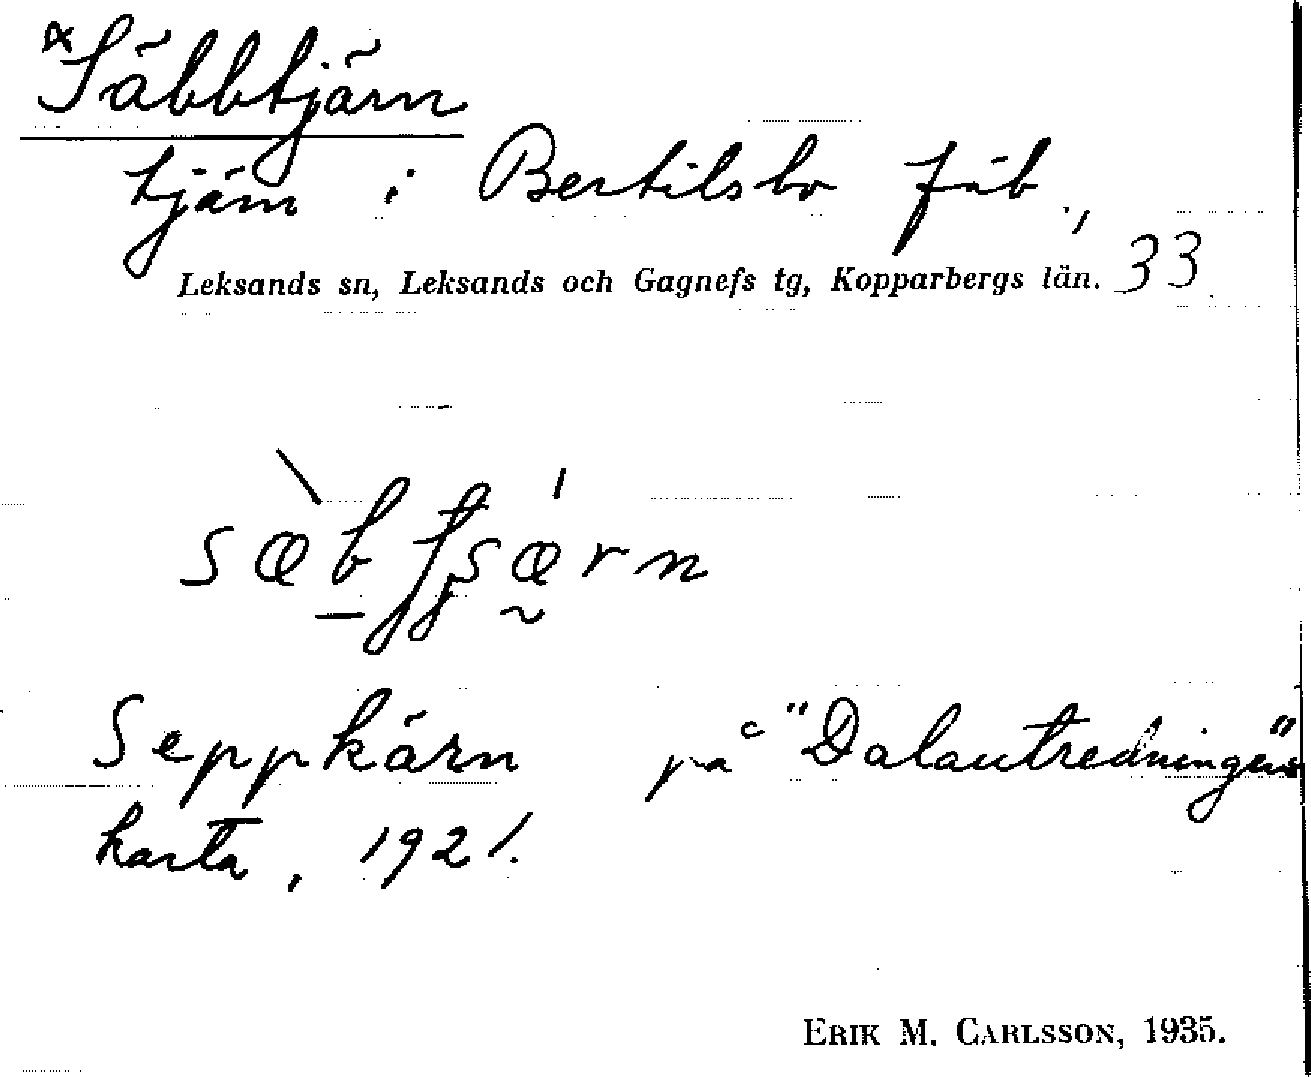 Säbbtjärn
tjärn i Bertilsbo fäb.,
Leksands sn, Leksands och Gagnefs tg, Kopparbergs län. 33
Seppkärn på "Dalautredningens"
karta, 1921.
ERIK M. CARLSSON, 1935.